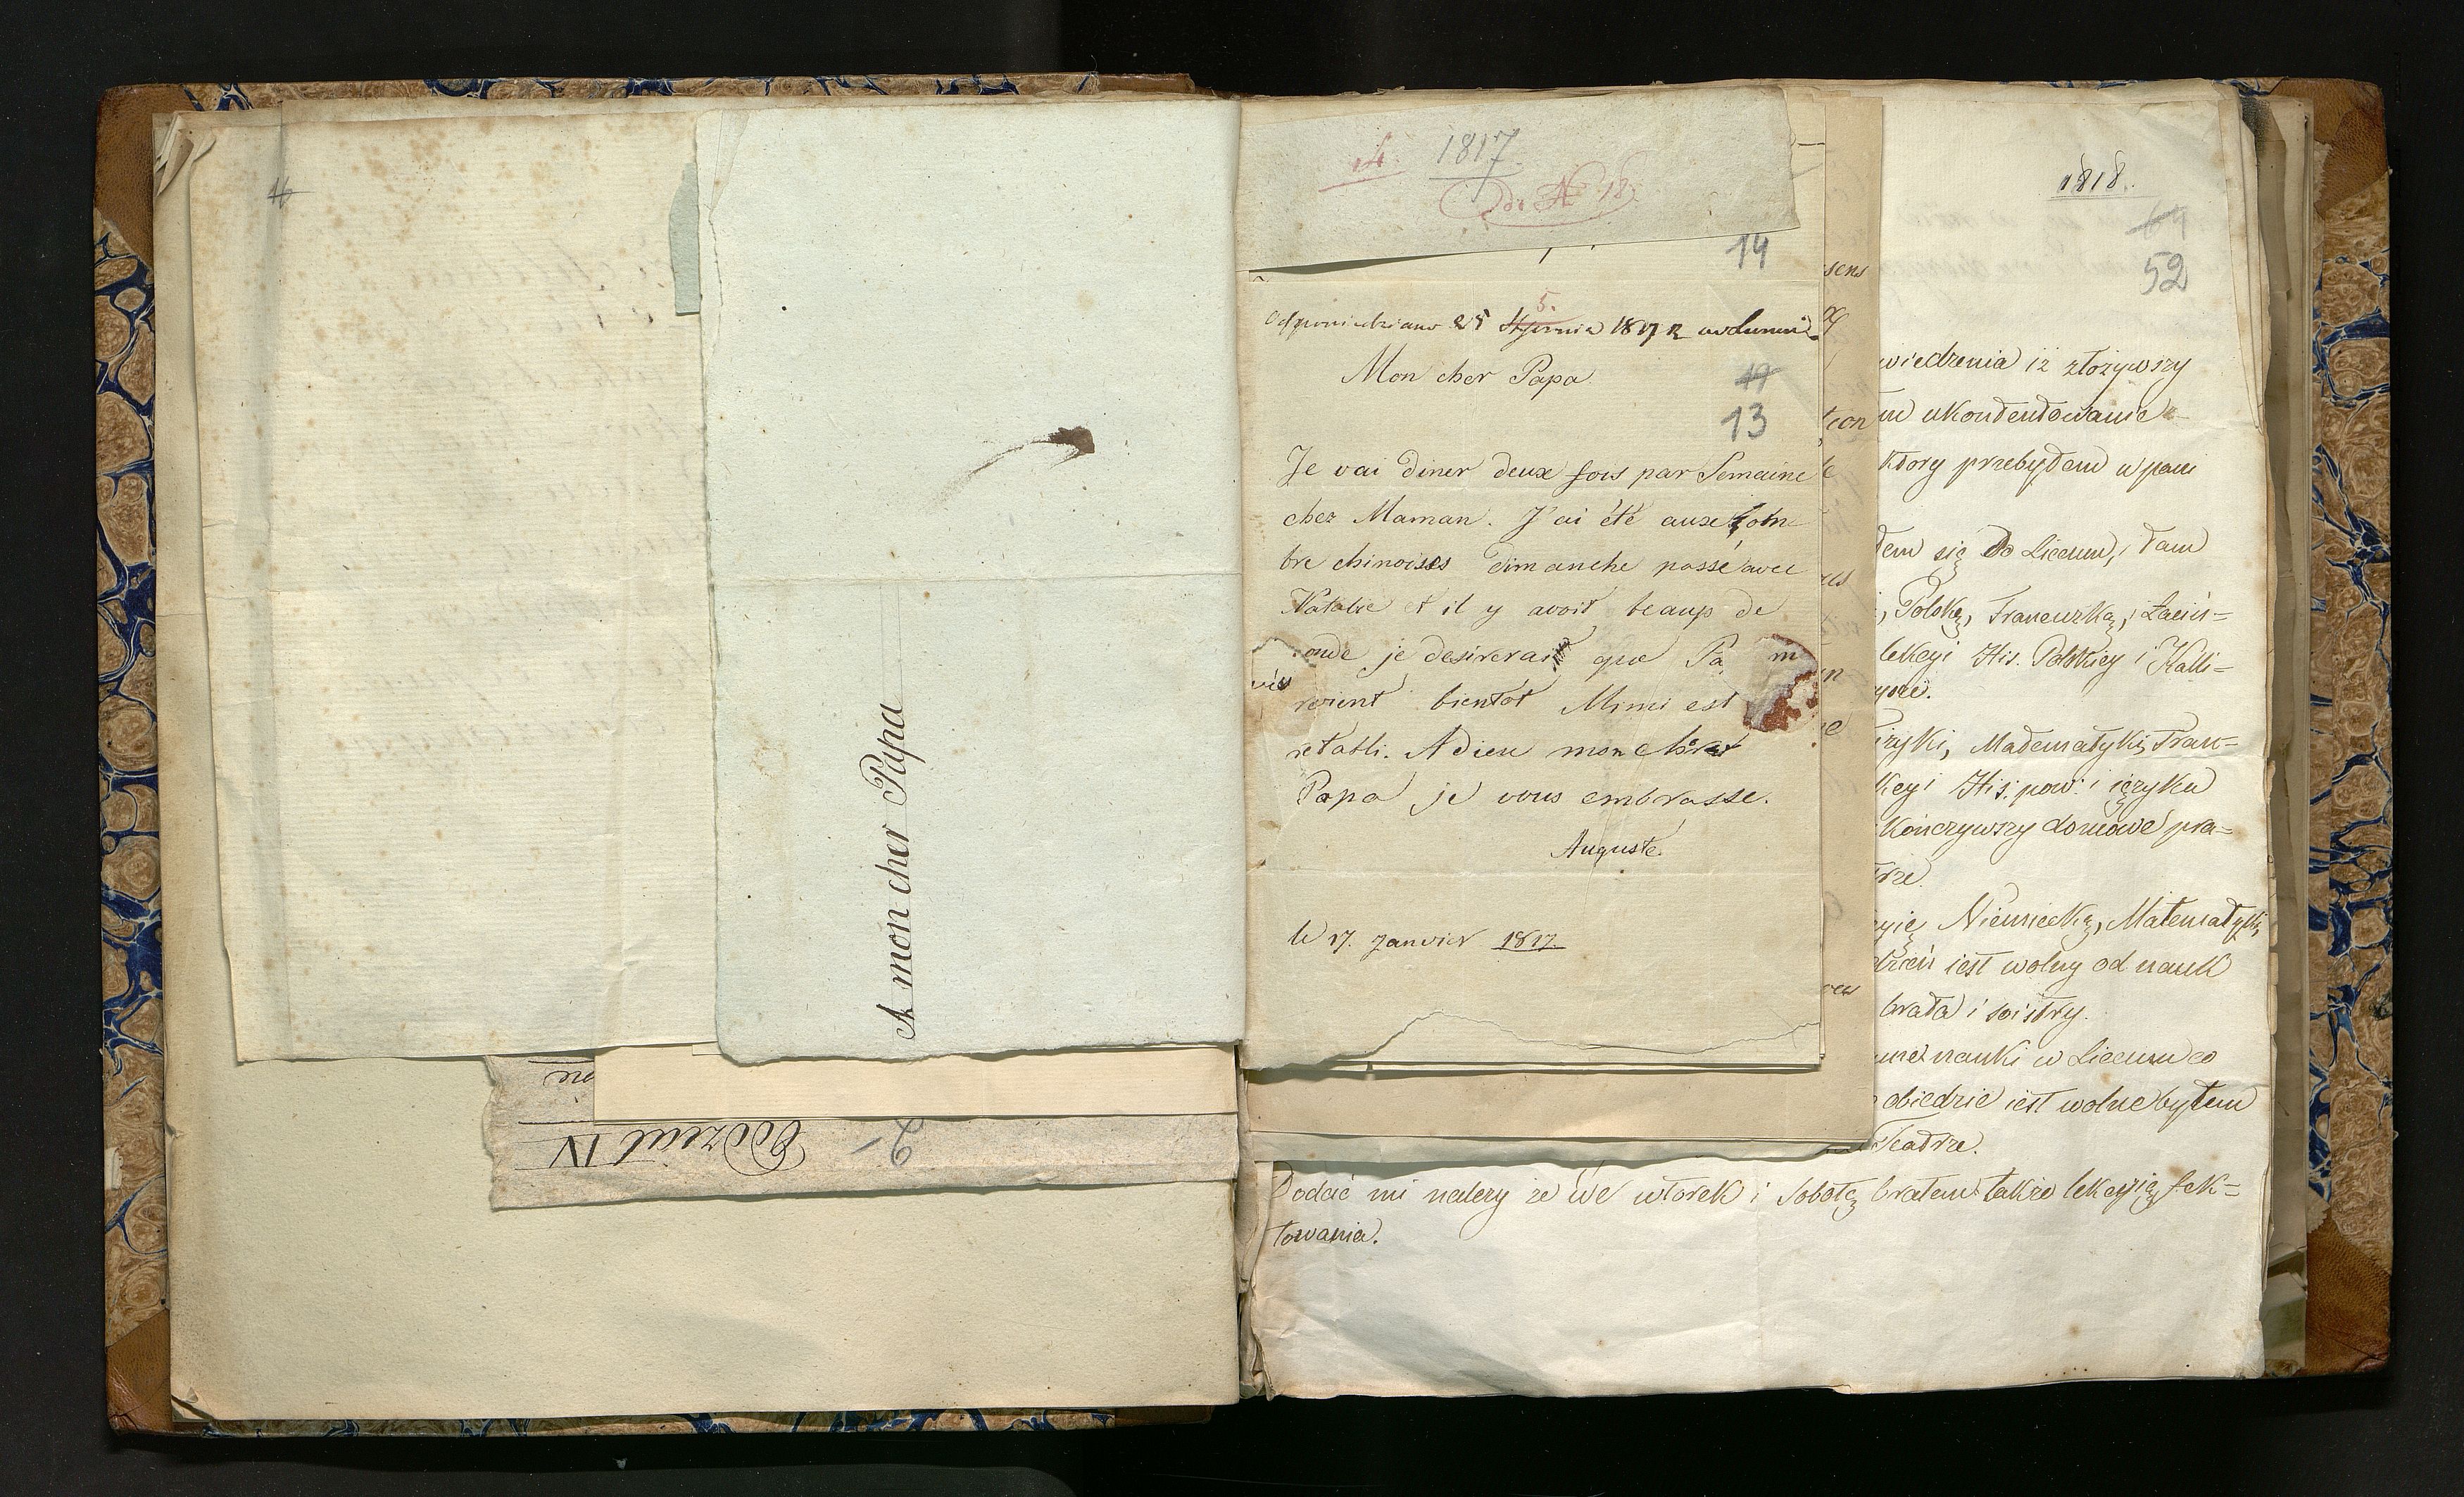 A mon cher Papa
Oddział IV
2
4. 1817
do N 18.
14
5.
Odpowiedziano 25 Stycznia 1817 z
Mon cher Papa
19
13
Je vai diner deux fois par Semaine
chez Maman. J'ai été aux om
bre chinoises dimanche passé avec
Natalie et il y avoit beaup de
onde je desirerai que Pa m
revient bientot Mimi est
retabli. Adieu mon cher
Papa je vous embrasse.
Auguste.
le 17. janvier 1817.
1818.
64
52
wiedzenia iż złożywszy
ukontentowanie
ktory przebyłem u pani
łem się do Liceum, i tam
, Polską, Francuzką, i Łaciń-
lekcyi His. Polskiey i Kalli-
izyki, Matematyki, Fran-
kcyi His: pow: i ięzyku
kończywszy domowe pra-
trze
cyię Niemiecką, Matematyki,
dzień iest wolny od nauk
brata i soistry.
nauki w Liceum co
obiedzie iest wolne byłem
Teatrze.
Dodać mi należy że we wtorek i Sobotę bratem także lekcyią fek-
towania.